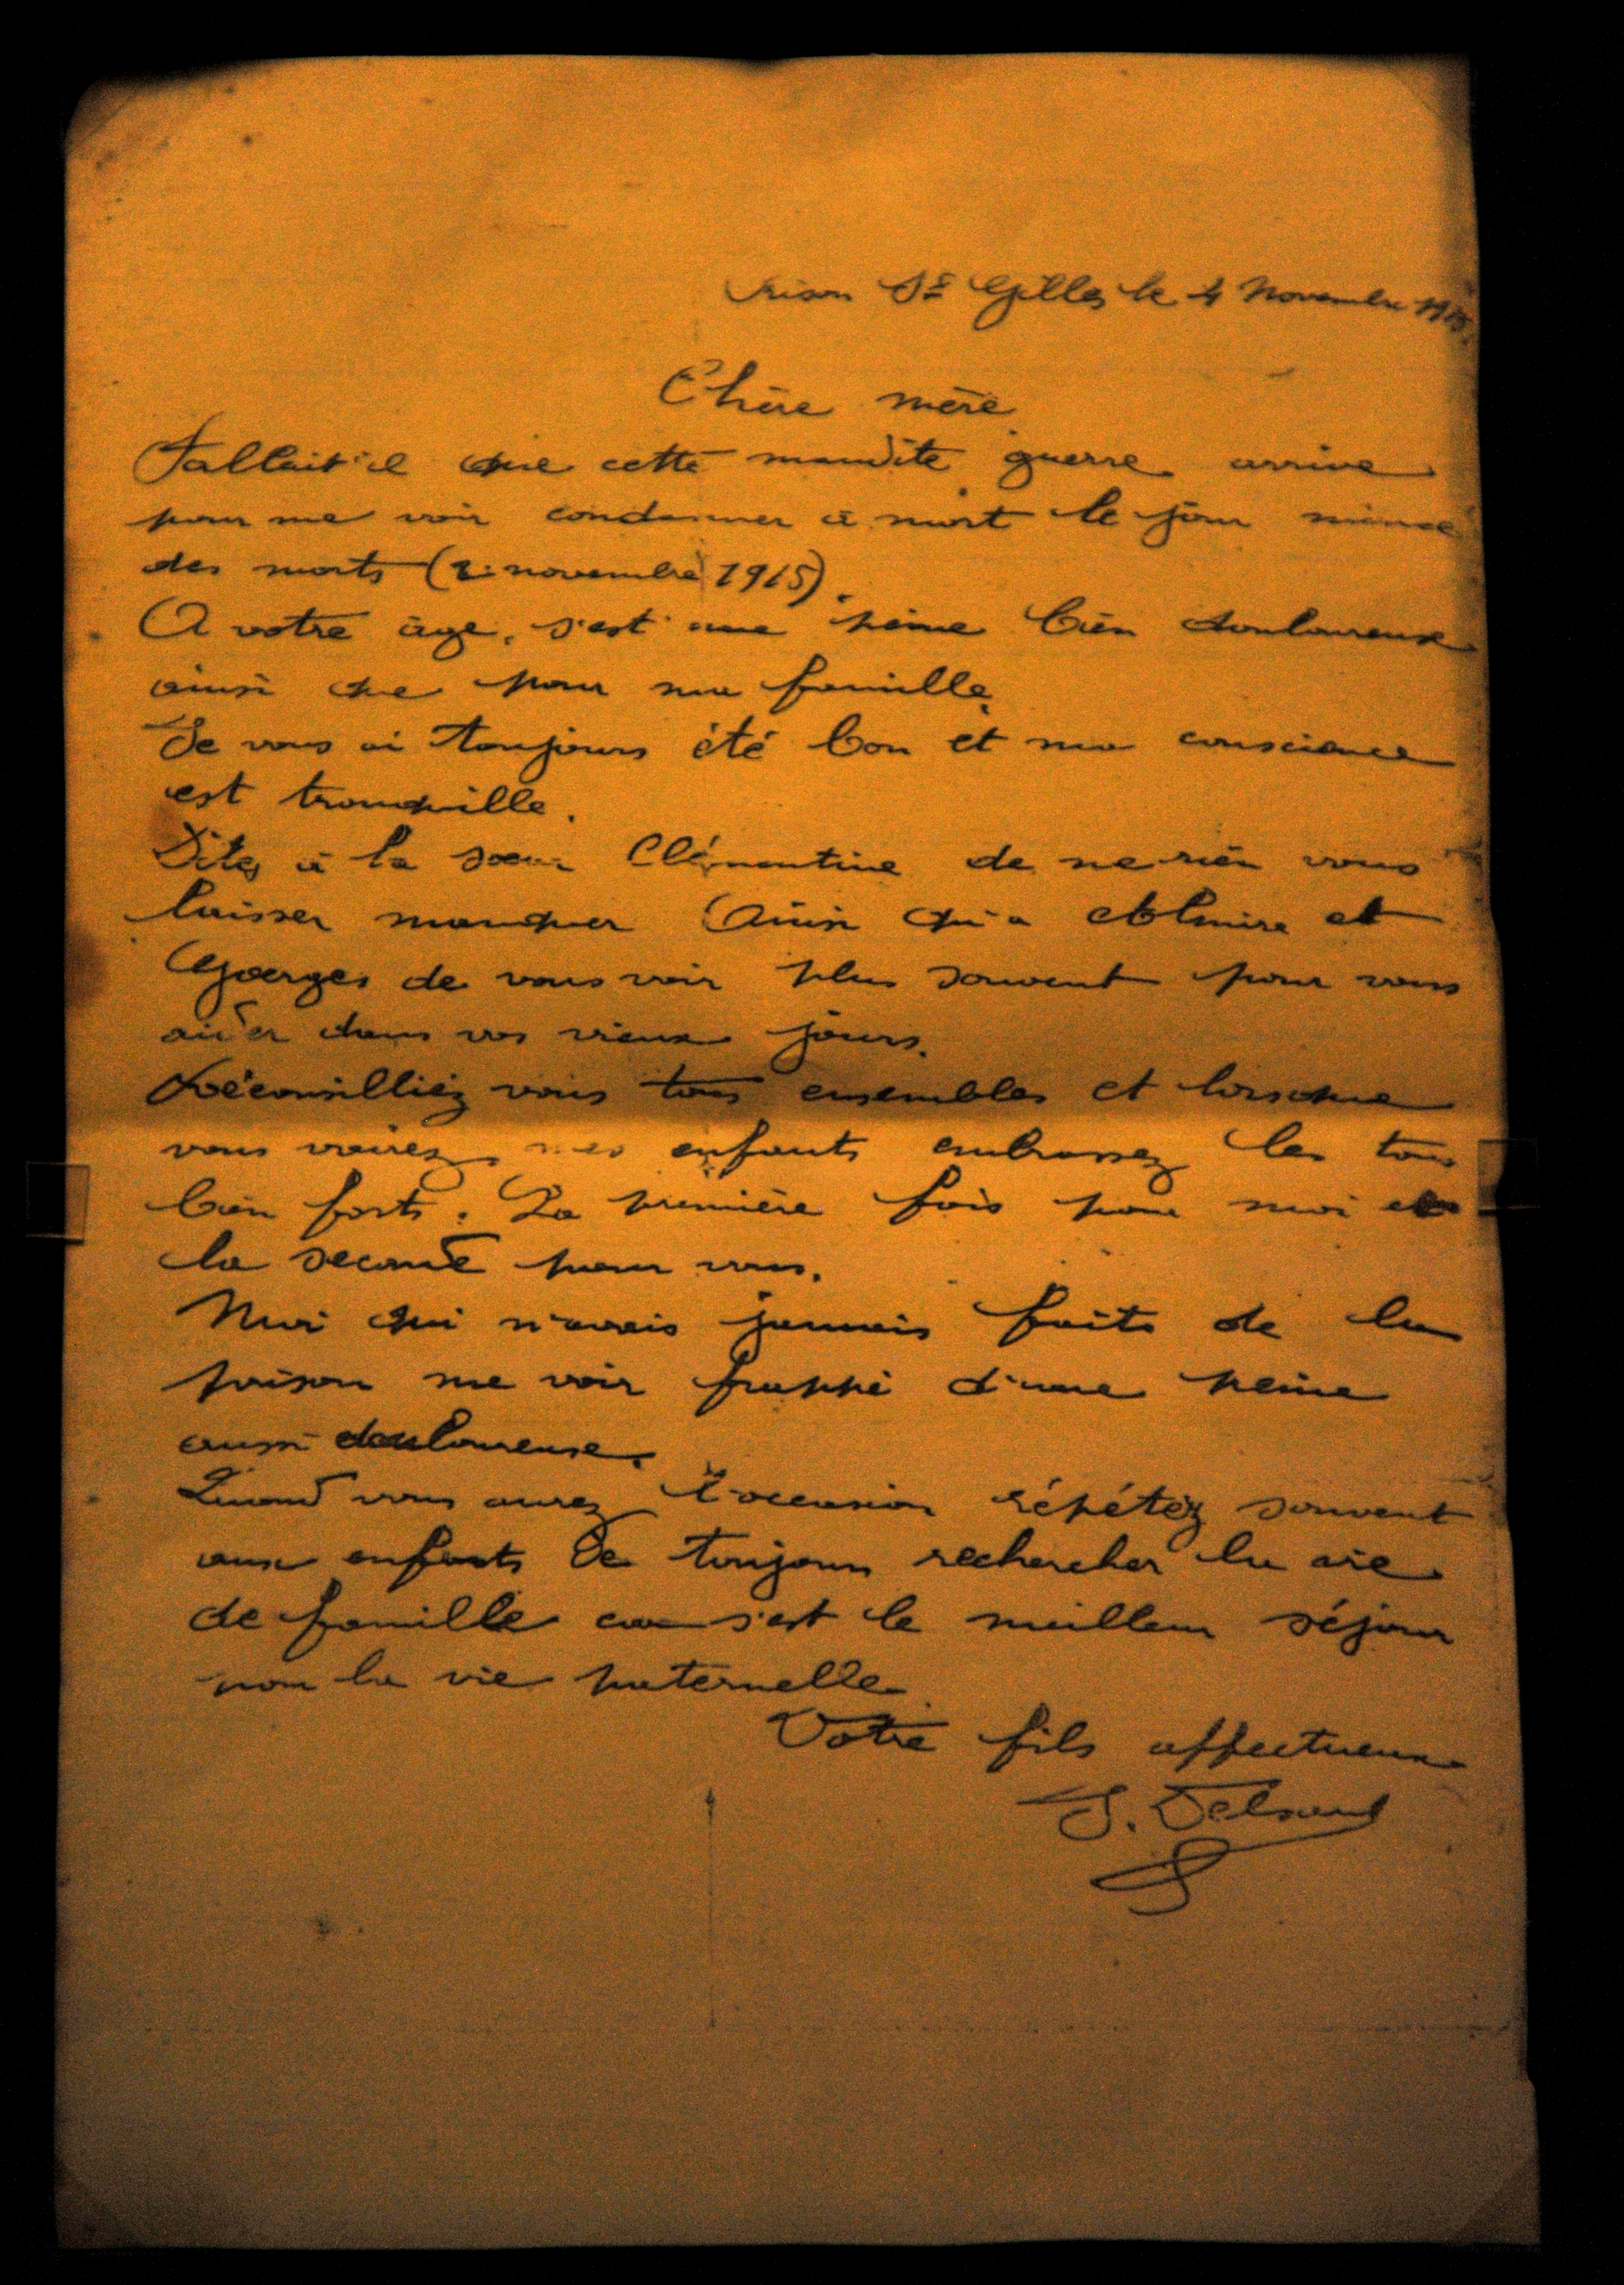 Prison St Gilles le 4 Novembre 1915
Chère mère
Fallait il que cette maudite guerre arrive
pour me voir condamner à mort le jour même
des morts (2 novembre 1915).
A votre âge, s'est une peine bien douloureuse
ainsi que pour ma famille.
Je vous ai toujours été bon et ma conscience
est tranquille.
Dites à la sœur Clémentine de ne rien vous
laisser manquer Ainsi qu'a et
Georges de vous voir plus souvent pour vous
aider dans vos vieux jours.
Réconsilliéz vous tous ensembles et lorsque
vous voirez mes enfants embrassez les tous
bien forts. La première fois pour moi et
la seconde pour vous.
Moi qui n'avais jamais faits de la
prison me voir frappé d'une peine
aussi douloureuse.
Quand vous aurez l'occasion répétéz souvent
aux enfants de toujours rechercher la vie
de famille car s'est le meilleur séjour
pour la vie paternelle.
Votre fils affectueux
J. Delsaut